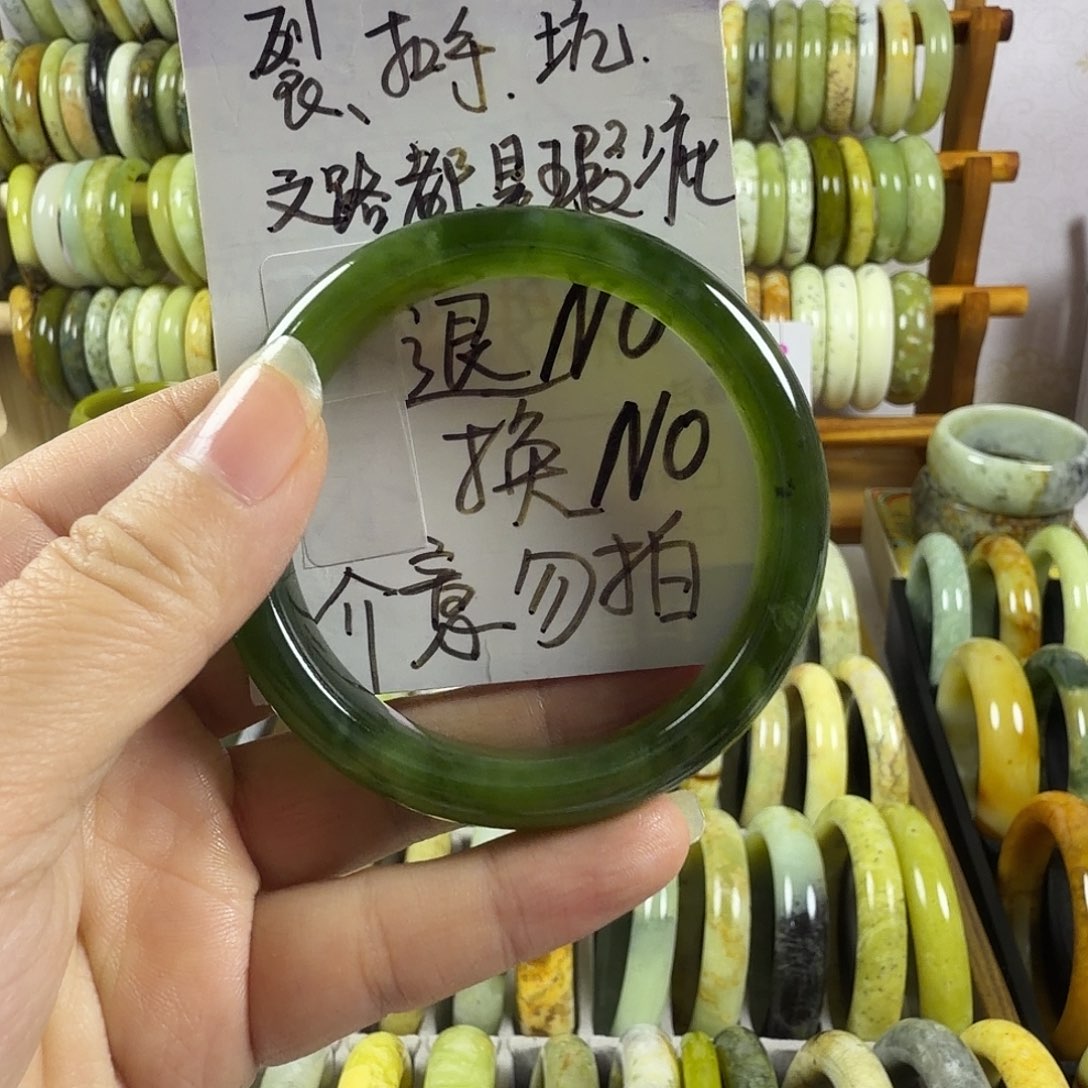 裂、扣手.坑.
文路都是瑕疵
退NO
换NO
介意勿拍